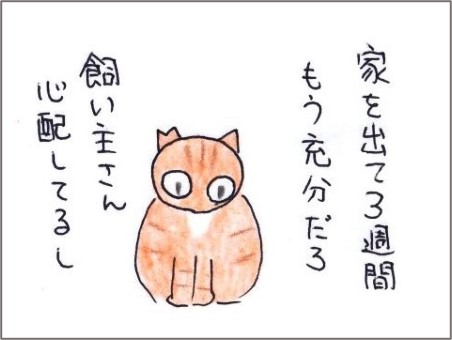 家を出て3週間
もう充分だろ
飼い主さん
心配してるし